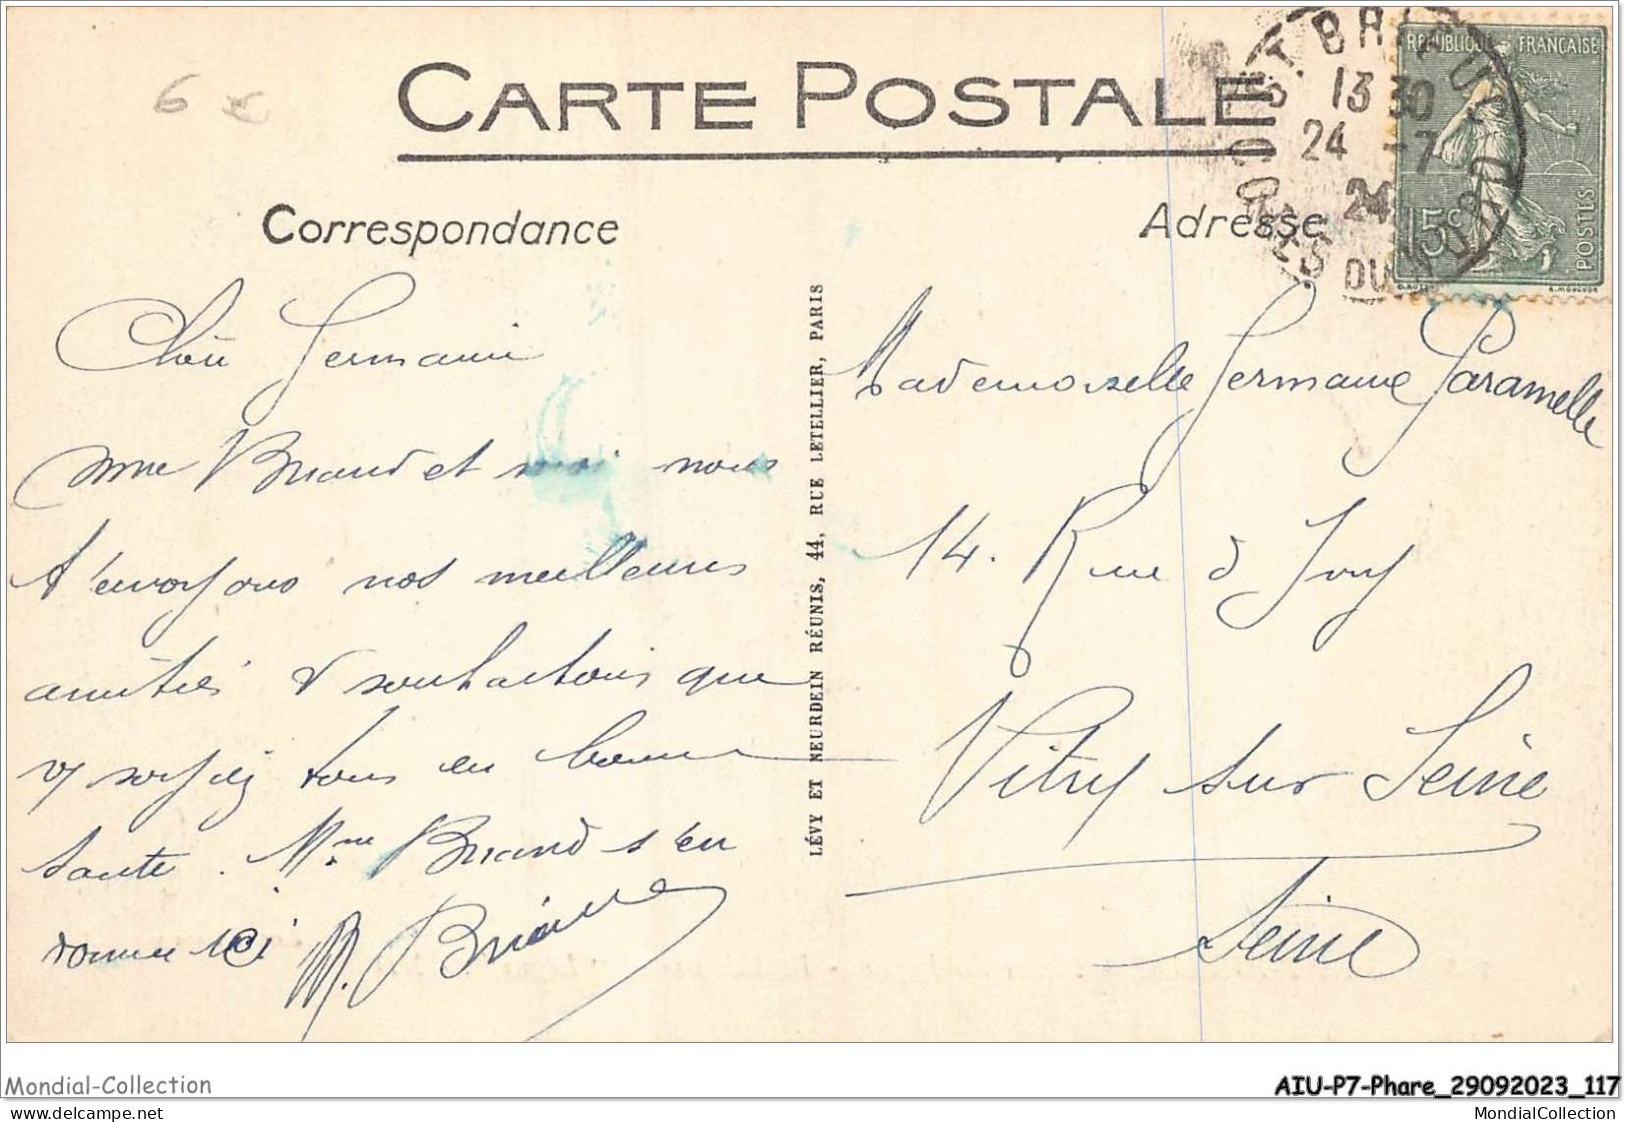 6 €
CARTE POSTALE
ST BRIEUC
13 30
24 -7
24
CÔTES DU NORD
RÉPUBLIQUE FRANÇAISE
15c
POSTES
Correspondance
Adresse
Chère Germaine
Mme Briand et moi nous
t'envoyons nos meilleures
amitiés & souhaitons que
vs soyiez tous en bonne
santé. Mme Briand s'en
LÉVY ET NEURDEIN RÉUNIS, 44, RUE LETELLIER, PARIS
Mademoiselle Germaine Paramelle
14. Rue d Ivry
Vitry sur Seine
Seine
Mondial-Collection
AIU-P7-Phare_29092023_117
the-violet.com
MondialCollection